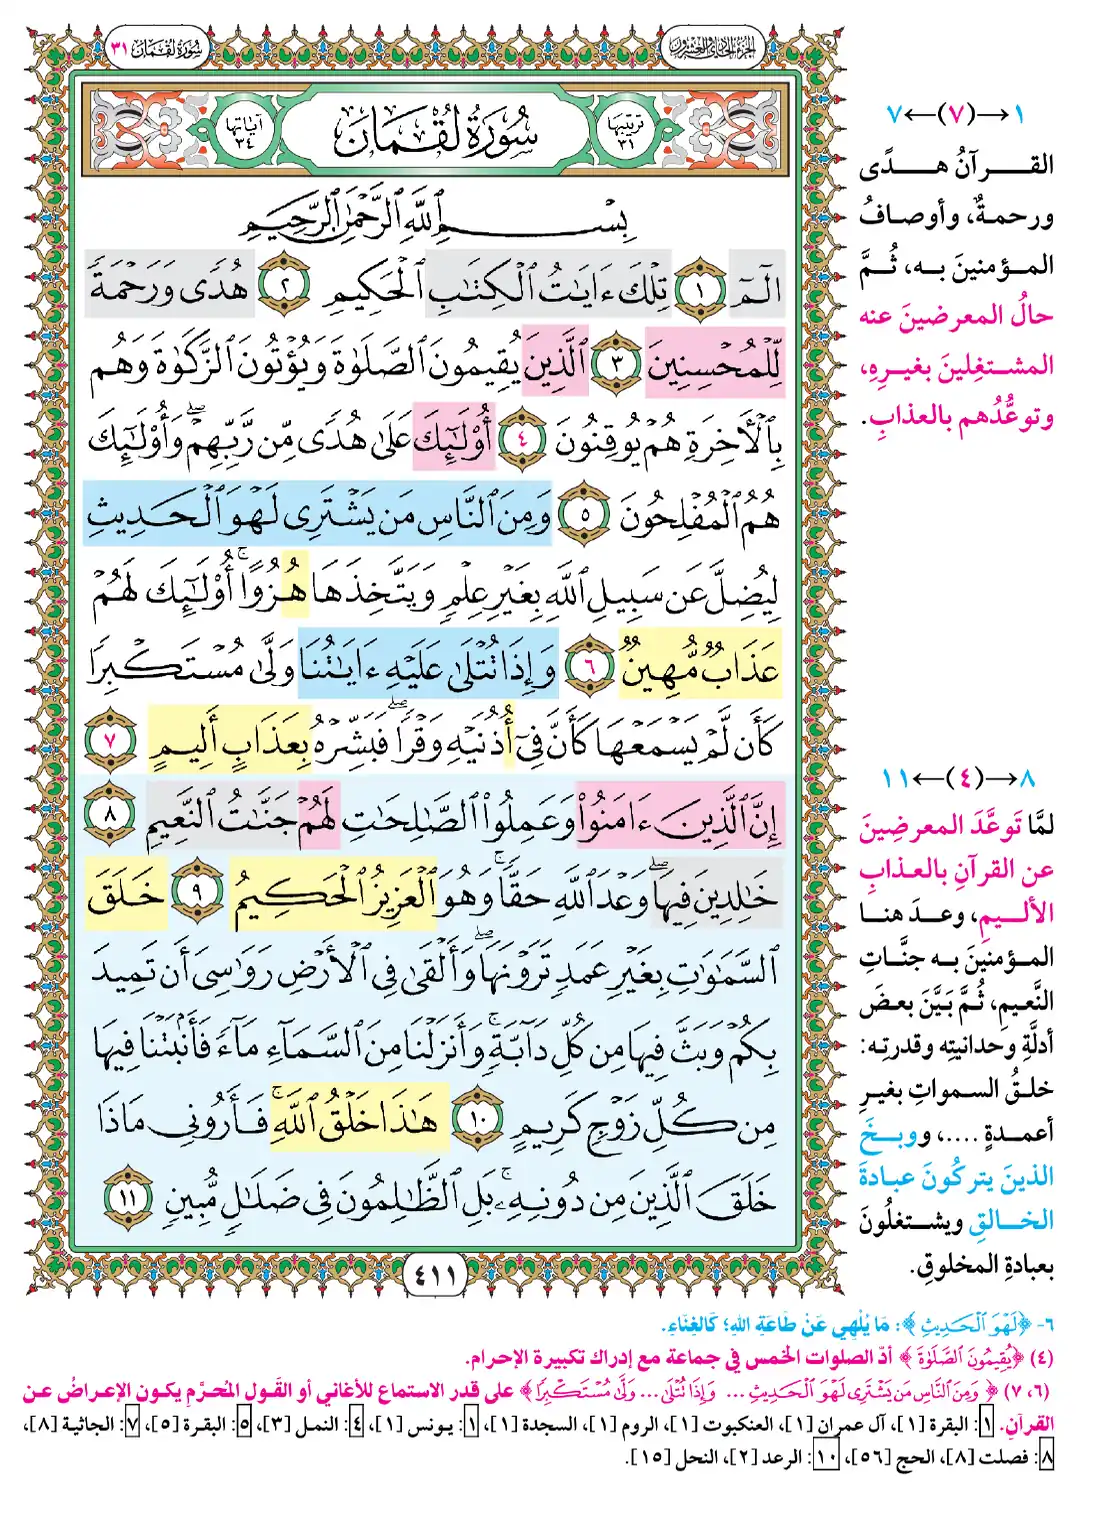 الجزء الحادي والعشرون
سورة لقمان ٣١
ترتيبها ٣١
سُورَةُ لُقْمَان
آياتها ٣٤
بِسْمِ ٱللَّهِ ٱلرَّحْمَٰنِ ٱلرَّحِيمِ
الٓمٓ ١ تِلْكَ ءَايَٰتُ ٱلْكِتَٰبِ ٱلْحَكِيمِ ٢ هُدًى وَرَحْمَةً
لِّلْمُحْسِنِينَ ٣ ٱلَّذِينَ يُقِيمُونَ ٱلصَّلَوٰةَ وَيُؤْتُونَ ٱلزَّكَوٰةَ وَهُم
بِٱلْءَاخِرَةِ هُمْ يُوقِنُونَ ٤ أُوْلَٰٓئِكَ عَلَىٰ هُدًى مِّن رَّبِّهِمْ ۖ وَأُوْلَٰٓئِكَ
هُمُ ٱلْمُفْلِحُونَ ٥ وَمِنَ ٱلنَّاسِ مَن يَشْتَرِى لَهْوَ ٱلْحَدِيثِ
لِيُضِلَّ عَن سَبِيلِ ٱللَّهِ بِغَيْرِ عِلْمٍ وَيَتَّخِذَهَا هُزُوًا ۚ أُوْلَٰٓئِكَ لَهُمْ
عَذَابٌ مُّهِينٌ ٦ وَإِذَا تُتْلَىٰ عَلَيْهِ ءَايَٰتُنَا وَلَّىٰ مُسْتَكْبِرًا
كَأَن لَّمْ يَسْمَعْهَا كَأَنَّ فِىٓ أُذُنَيْهِ وَقْرًا ۖ فَبَشِّرْهُ بِعَذَابٍ أَلِيمٍ ٧
إِنَّ ٱلَّذِينَ ءَامَنُوا۟ وَعَمِلُوا۟ ٱلصَّٰلِحَٰتِ لَهُمْ جَنَّٰتُ ٱلنَّعِيمِ ٨
خَٰلِدِينَ فِيهَا ۖ وَعْدَ ٱللَّهِ حَقًّا ۚ وَهُوَ ٱلْعَزِيزُ ٱلْحَكِيمُ ٩ خَلَقَ
ٱلسَّمَٰوَٰتِ بِغَيْرِ عَمَدٍ تَرَوْنَهَا ۖ وَأَلْقَىٰ فِى ٱلْأَرْضِ رَوَٰسِىَ أَن تَمِيدَ
بِكُمْ وَبَثَّ فِيهَا مِن كُلِّ دَآبَّةٍ ۚ وَأَنزَلْنَا مِنَ ٱلسَّمَآءِ مَآءً فَأَنۢبَتْنَا فِيهَا
مِن كُلِّ زَوْجٍ كَرِيمٍ ١٠ هَٰذَا خَلْقُ ٱللَّهِ ۚ فَأَرُونِى مَاذَا
خَلَقَ ٱلَّذِينَ مِن دُونِهِۦ ۚ بَلِ ٱلظَّٰلِمُونَ فِى ضَلَٰلٍ مُّبِينٍ ١١
٤١١
١→(٧)←٧
القرآنُ هدًى
ورحمةٌ، وأوصافُ
المؤمنينَ به، ثُمَّ
حالُ المعرضينَ عنه
المشتغِلينَ بغيرِهِ،
وتوعُّدُهم بالعذابِ.
٨→(٤)←١١
لمَّا تَوعَّدَ المعرضِينَ
عن القرآنِ بالعذابِ
الأليمِ، وعدَ هنا
المؤمنينَ به جنَّاتِ
النَّعيمِ، ثُمَّ بَيَّنَ بعضَ
أدلَّةِ وحدانيتِه وقدرتِه:
خلقُ السمواتِ بغيرِ
أعمدةٍ ....، ووبخَ
الذينَ يتركُونَ عبادةَ
الخالقِ ويشتغلُونَ
بعبادةِ المخلوقِ.
٦- ﴿لَهْوَ ٱلْحَدِيثِ﴾: مَا يُلْهِي عَنْ طَاعَةِ اللهِ؛ كَالغِنَاءِ.
(٤) ﴿يُقِيمُونَ ٱلصَّلَوٰةَ﴾ أدِّ الصلوات الخمس في جماعة مع إدراك تكبيرة الإحرام.
(٦، ٧) ﴿وَمِنَ ٱلنَّاسِ مَن يَشْتَرِى لَهْوَ ٱلْحَدِيثِ ... وَإِذَا تُتْلَىٰ ... وَلَّىٰ مُسْتَكْبِرًا﴾ على قدر الاستماع للأغاني أو القَول المُحرَّم يكون الإعراضُ عن
القرآنِ. ١: البقرة [١]، آل عمران [١]، العنكبوت [١]، الروم [١]، السجدة [١]، ١: يونس [١]، ٤: النمل [٣]، ٥: البقرة [٥]، ٧: الجاثية [٨]،
٨: فصلت [٨]، الحج [٥٦]، ١٠: الرعد [٢]، النحل [١٥].